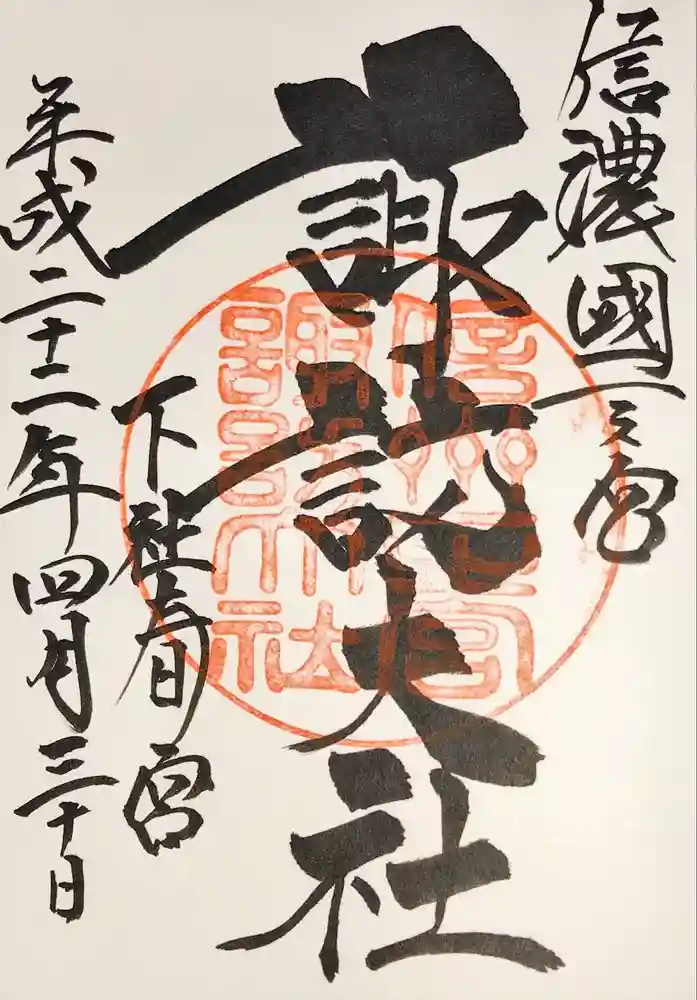 信濃國一之宮
諏訪大社
下社春宮
平成二十二年四月三十日
信州宮
諏訪大社